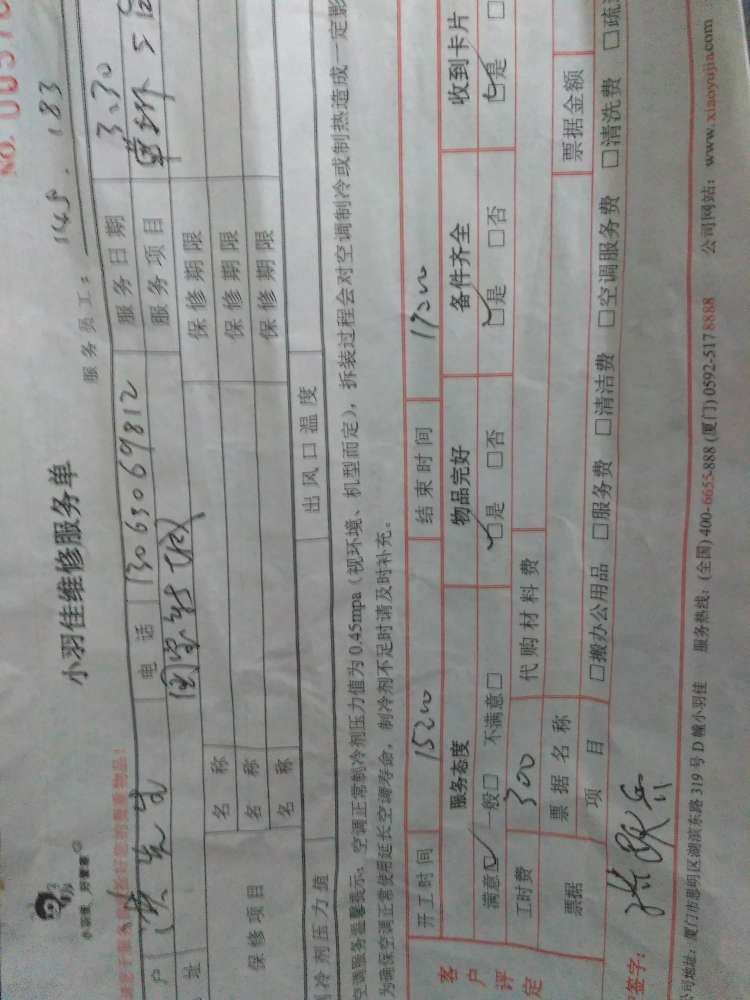 NO.
小羽佳 好管家
小羽佳维修服务单
服务员工： 145. 183
户 洪先生 电话 13063069812 服务日期 3.30
址 服务项目
保修项目 名称 保修期限
名称 保修期限
名称 保修期限
冷剂压力值 出风口温度
空调服务温馨提示：空调正常制冷剂压力值为0.45mpa（视环境、机型而定），拆装过程会对空调制冷或制热造成一定影
为确保空调正常使用延长空调寿命，制冷剂不足时请及时补充。
客户评定
开工时间 15:00 结束时间 17:00
服务态度 物品完好 备件齐全 收到卡片
满意☑ 一般□ 不满意□ ☑是 □否 ☑是 □否 ☑是 □
工时费 300 代购材料费
票据 票据名称 票据金额
项目 □搬办公用品 □服务费 □清洁费 □空调服务费 □清洗费 □疏
签字：
公司地址：厦门市思明区湖滨东路319号D幢小羽佳 服务热线：(全国)400-6655-888 (厦门)0592-5178888 公司网站：www.xiaoyujia.com